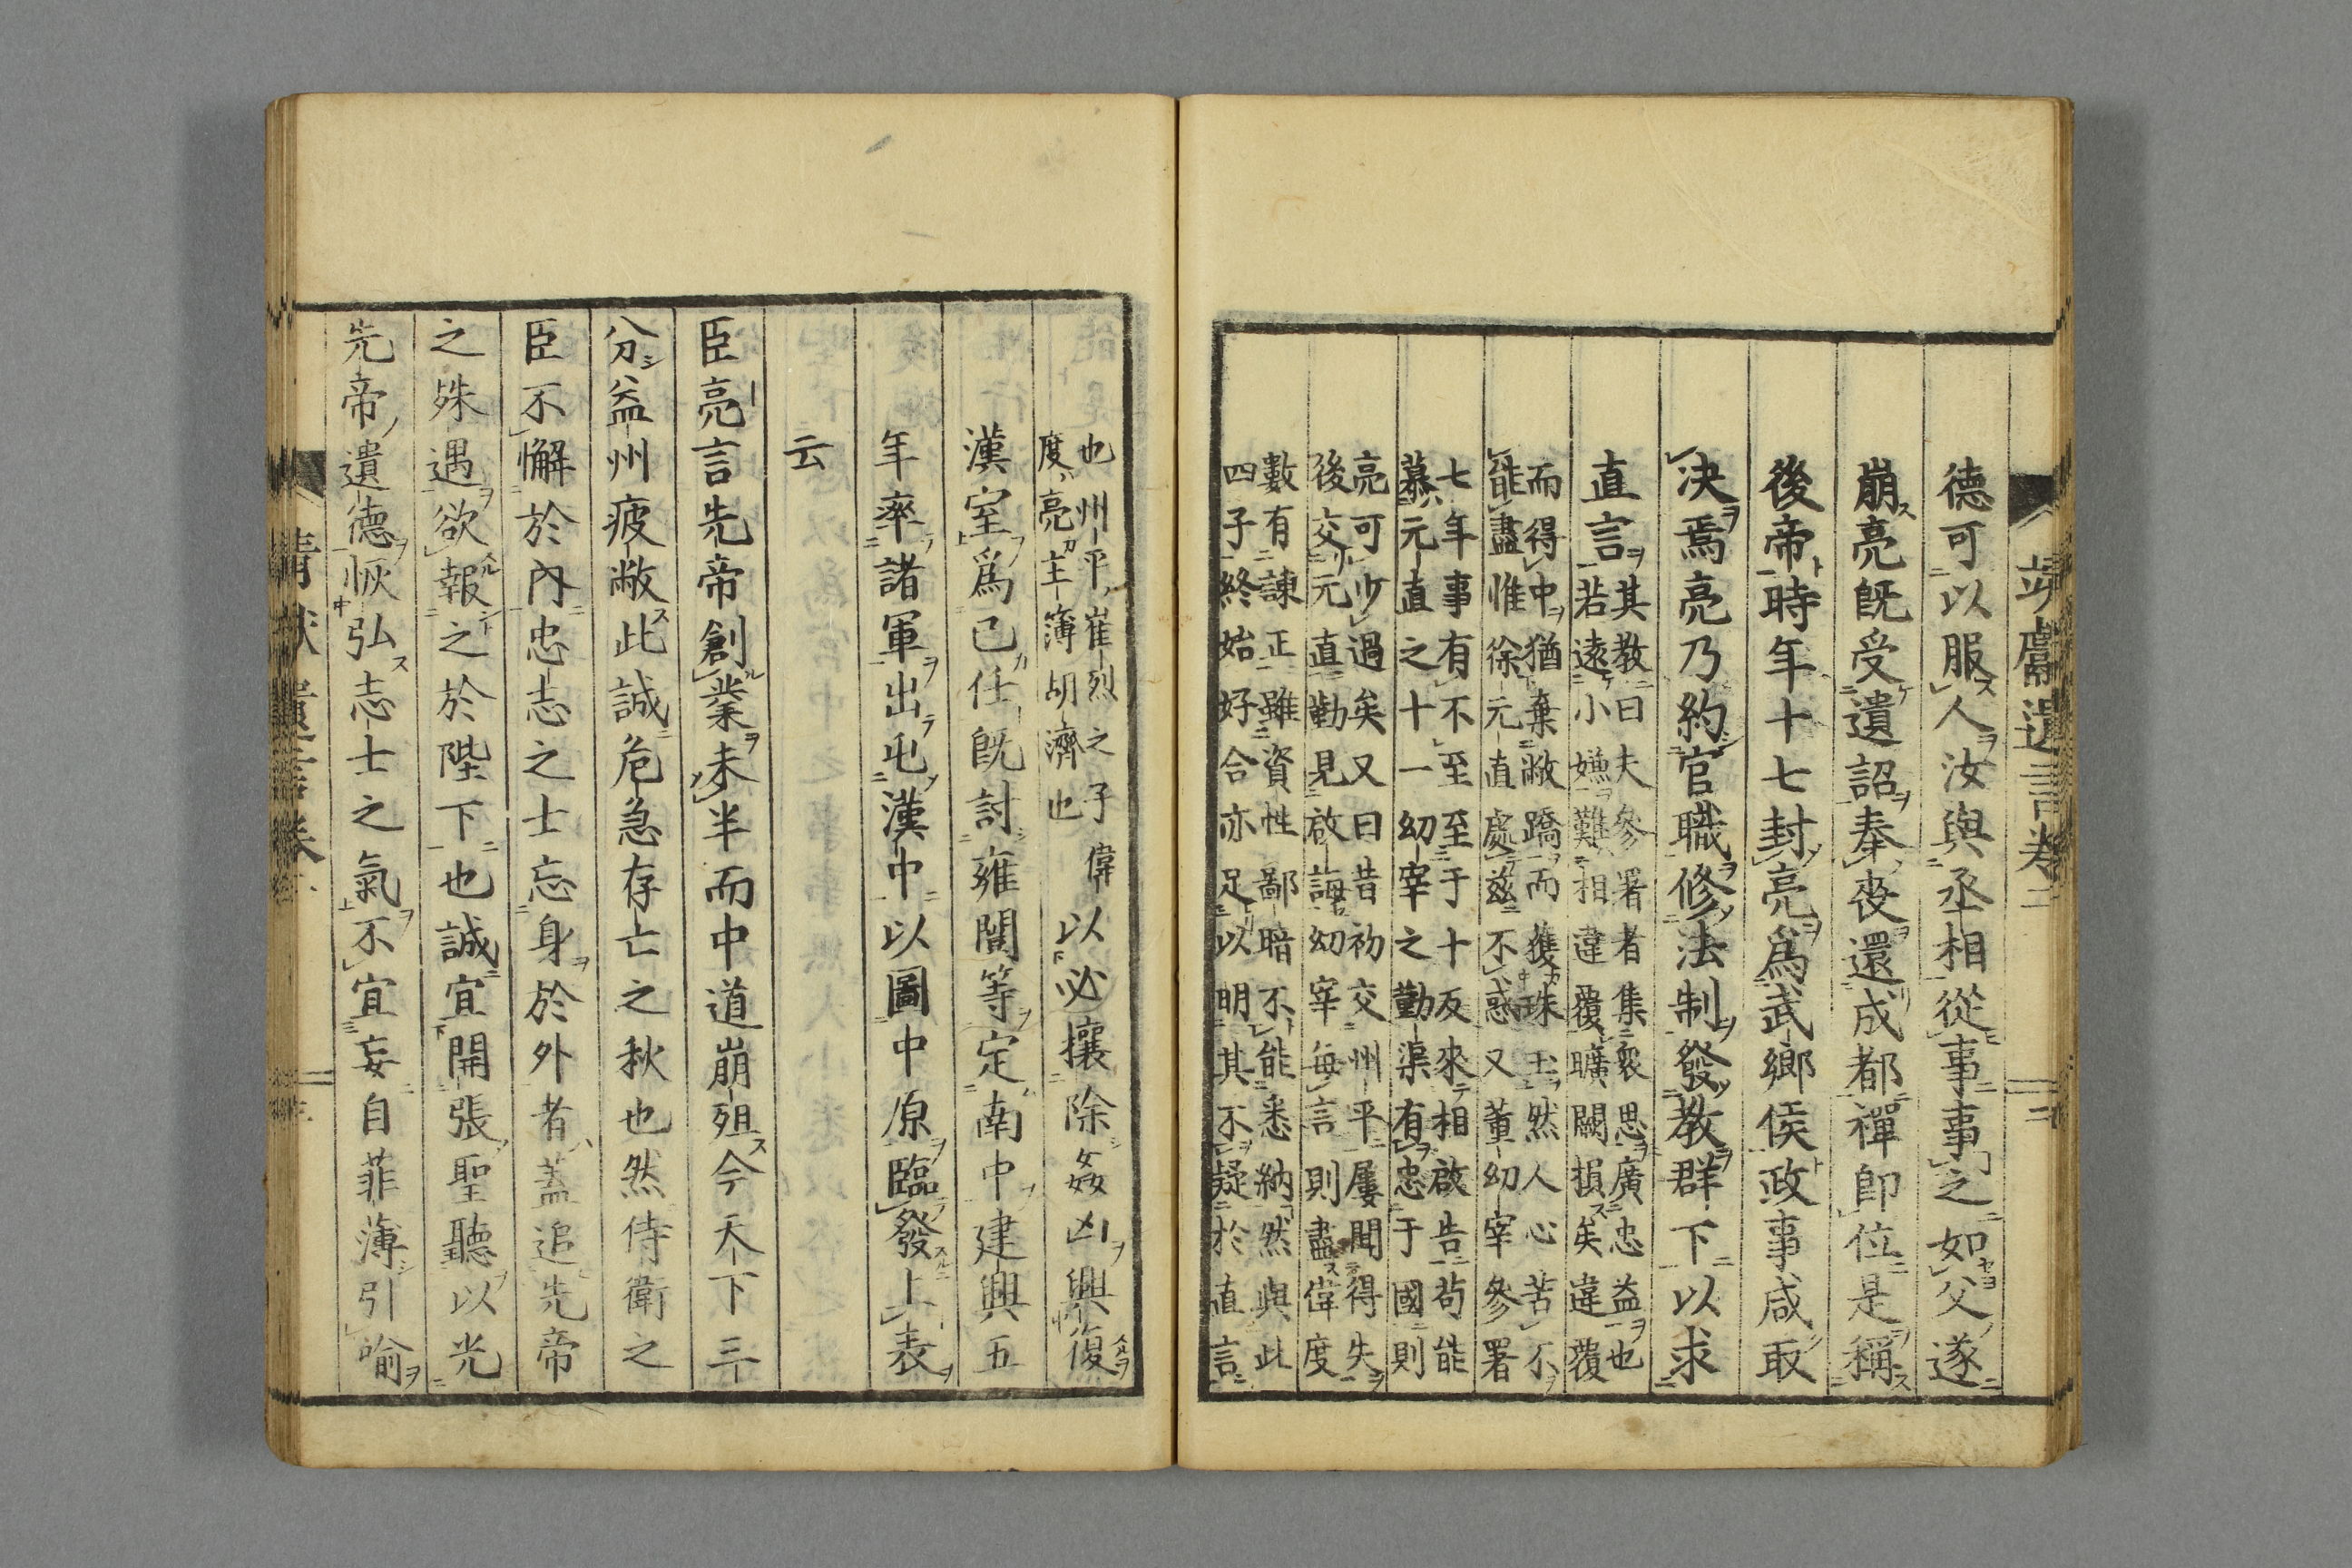 靖獻遺言卷二 二
德可以服人汝與丞相從事事之如父遂
崩亮既受遺詔奉喪還成都禪即位是稱
後帝時年十七封亮爲武鄉侯政事咸取
決焉亮乃約官職修法制發教群下以求
直言
其教曰夫參署者集衆思廣忠益也
若遠小嫌難相違覆曠闕損矣違覆
而得中猶棄敝蹻而獲珠玉然人心苦不
能盡惟徐元直處茲不惑又董幼宰參署
七年事有不至至于十反來相啟告苟能
慕元直之十一幼宰之勤渠有忠于國則
亮可少過矣又曰昔初交州平屢聞得失
後交元直勤見啟誨幼宰每言則盡偉度
數有諫正雖資性鄙暗不能悉納然與此
四子終始好合亦足以明其不疑於直言
也州平崔烈之子偉
度亮主簿胡濟也
以必攘除姦凶興復
漢室爲已任既討雍闓等定南中建興五
年率諸軍出屯漢中以圖中原臨發上表
云
臣亮言先帝創業未半而中道崩殂今天下三
分益州疲敝此誠危急存亡之秋也然侍衛之
臣不懈於內忠志之士忘身於外者蓋追先帝
之殊遇欲報之於陛下也誠宜開張聖聽以光
先帝遺德恢弘志士之氣不宜妄自菲薄引喻
靖獻遺言卷